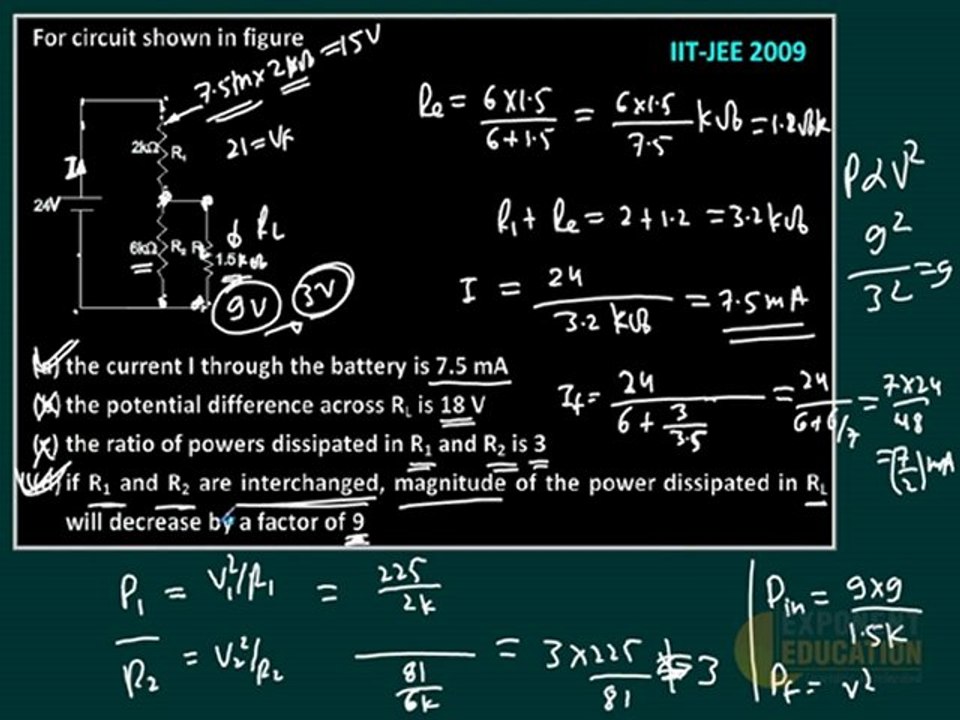 For circuit shown in figure
IIT-JEE 2009
7.5m×2kΩ=15V
21=VF
I
24V
2kΩ R₁
6kΩ R₂ R
1.5kΩ
R_L
9V
3V
Re = 6×1.5/6+1.5 = 6×1.5/7.5 kΩ = 1.2Ωk
R₁ + Re = 2+1.2 = 3.2kΩ
I = 24/3.2 kΩ = 7.5mA
P∝V²
9²/3² = 9
(a) the current I through the battery is 7.5 mA
(b) the potential difference across R_L is 18 V
(c) the ratio of powers dissipated in R₁ and R₂ is 3
(d) if R₁ and R₂ are interchanged, magnitude of the power dissipated in R_L
will decrease by a factor of 9
I_f = 24/6+3/3.5 = 24/6+6/7 = 7×24/48
= (7/2) mA
P₁ = V₁²/R₁ = 225/2k
P₂ = V₂²/R₂ 81/6k = 3×225/81 ≠ 3
P_in = 9×9/1.5K
P_f = V²
EXPONENT
EDUCATION